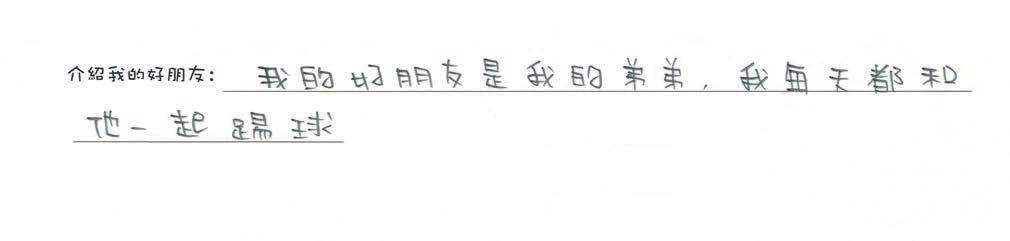 介紹我的好朋友： 我的好朋友是我的弟弟，我每天都和
他一起踢球